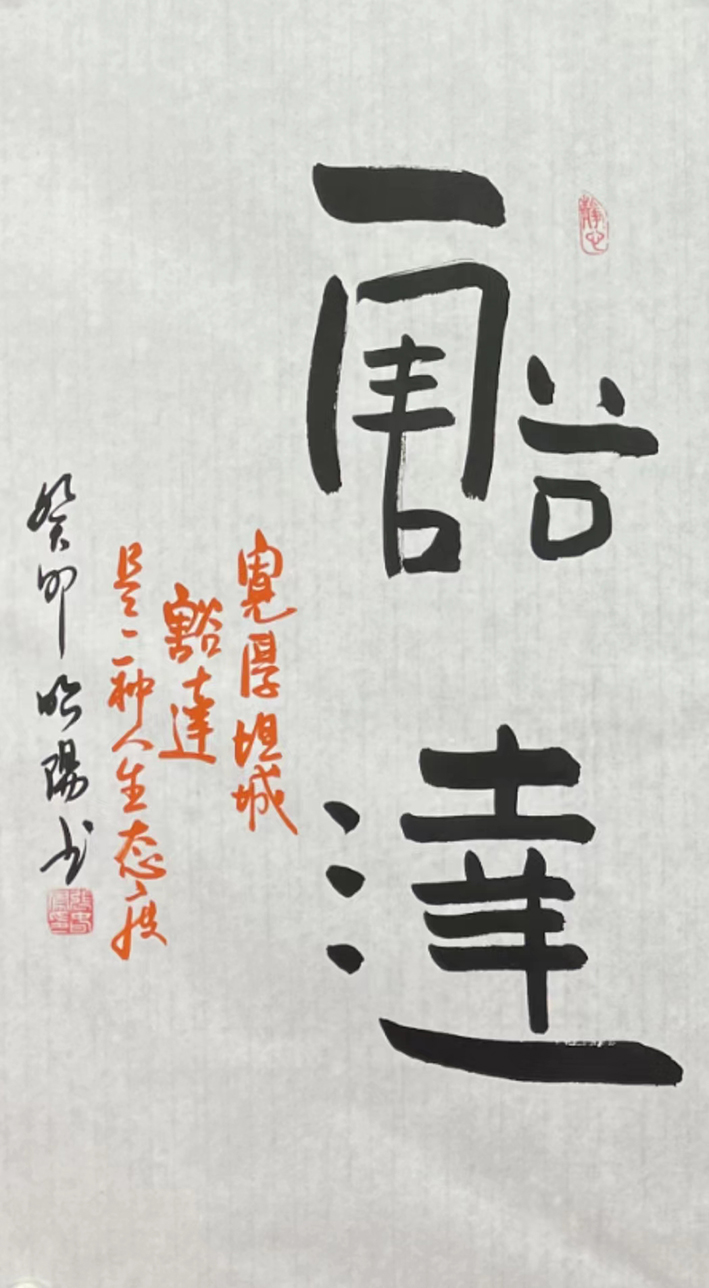 豁達
寬厚坦城
豁達
是一种人生态度
癸卯 昭陽书
靜心